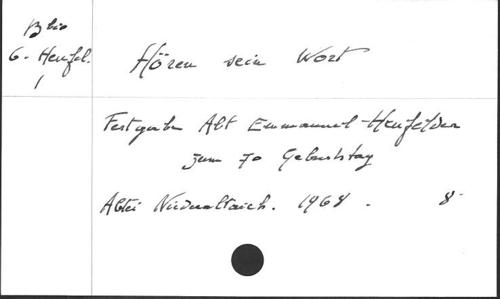 B bio
6. Heufel.
1
Hören sein Wort
Festgabe Abt Emmanuel Heufelder
zum 70 Geburtstag
Abtei Niederaltaich. 1968. 8